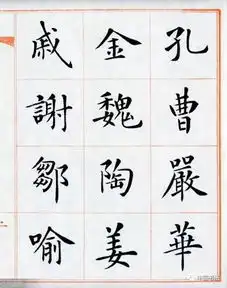 孔曹嚴華
金魏陶姜
戚謝鄒喻